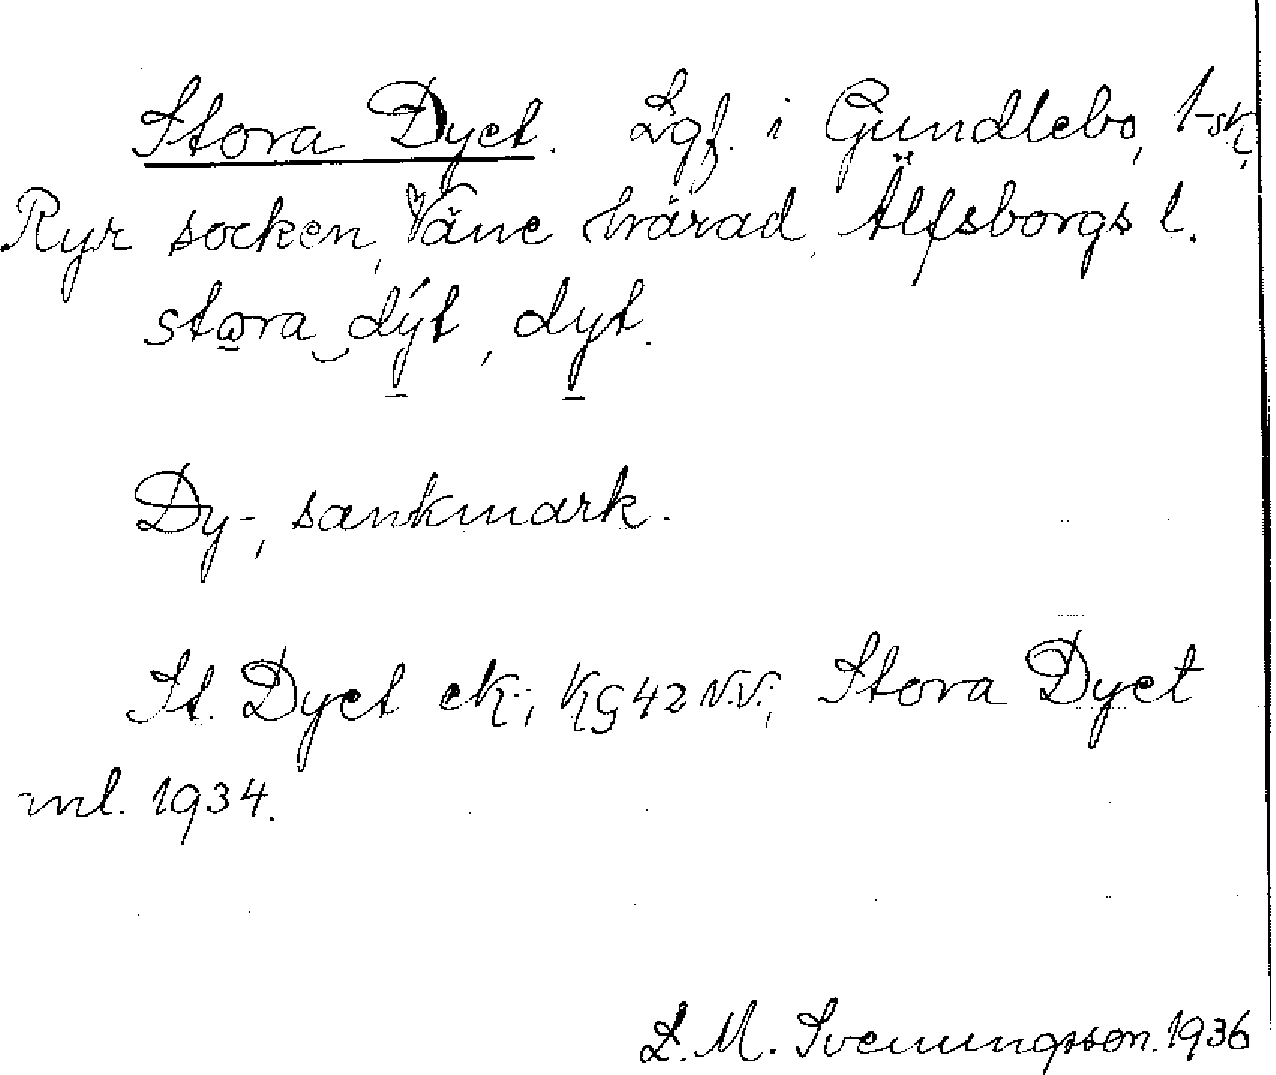 Stora Dyet. Lgf. i Gundlebo, 1-sk,
Ryr socken, Väne härad, Älfsborgs l.
stora dýt, dyt.
Dy-, sankmark.
St. Dyet ek.; KG 42 N.V.; Stora Dyet
ml. 1934.
L. M. Svenungsson. 1936